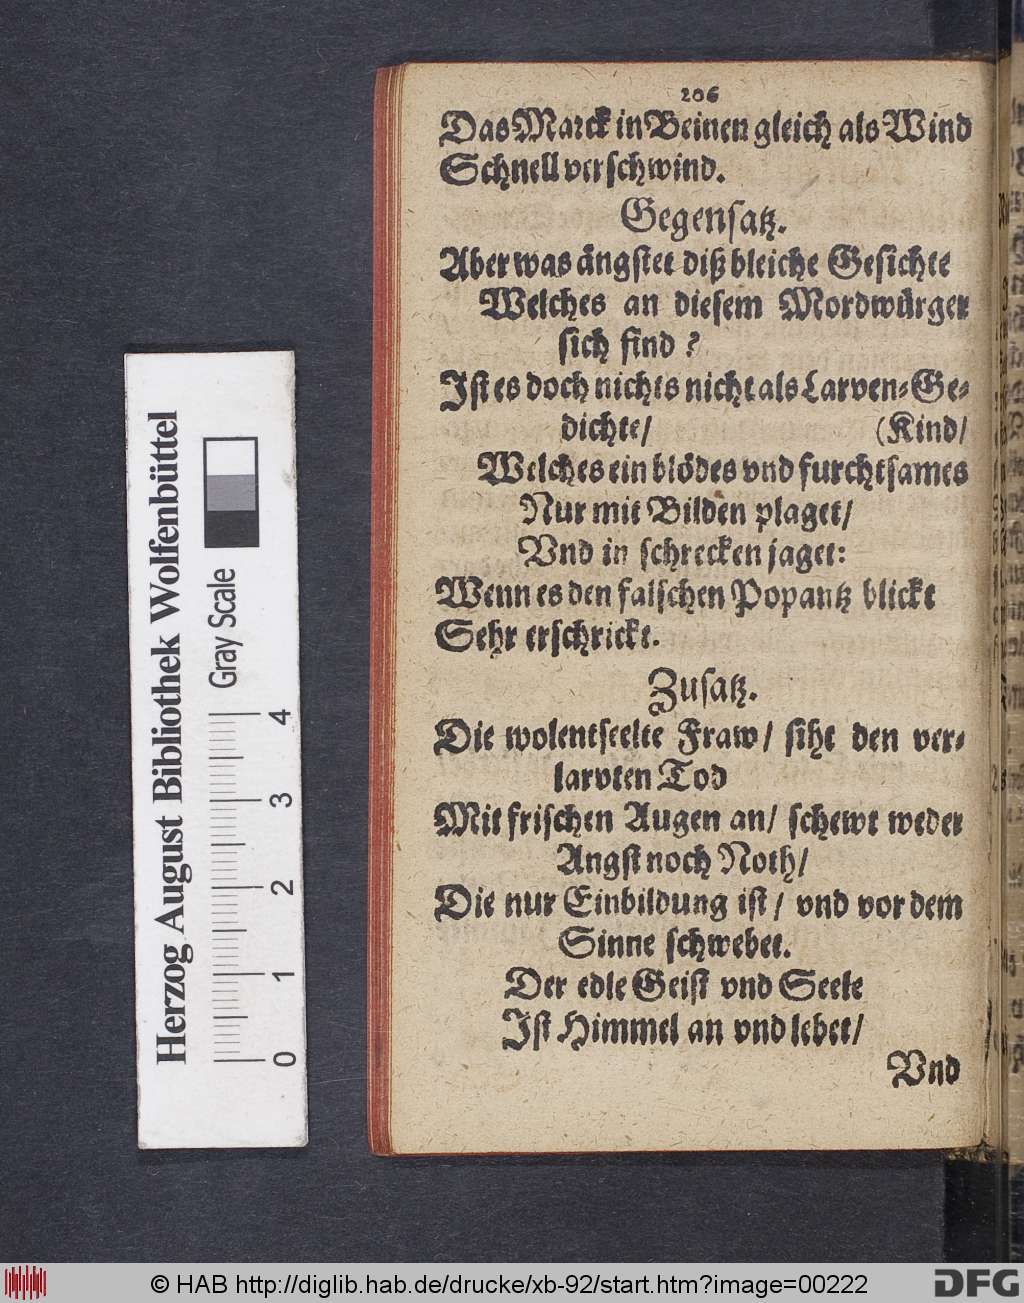 206
Das Marck in Beinen gleich als Wind
Schnell verschwind.
Gegensatz.
Aber was ängstet diß bleiche Gesichte
Welches an diesem Mordwürger
sich find?
Ist es doch nichts nicht als Larven-Ge-
dichte/ (Kind/
Welches ein blödes vnd furchtsames
Nur mit Bilden plaget/
Vnd in schrecken jaget:
Wenn es den falschen Popantz blickt
Sehr erschrickt.
Zusatz.
Die wolentseelte Fraw/ siht den ver-
larvten Tod
Mit frischen Augen an/ schewt weder
Angst noch Noth/
Die nur Einbildung ist/ vnd vor dem
Sinne schwebet.
Der edle Geist vnd Seele
Ist Himmel an vnd lebet/
Vnd
Herzog August Bibliothek Wolfenbüttel
Gray Scale
0 1 2 3 4
© HAB http://diglib.hab.de/drucke/xb-92/start.htm?image=00222
DFG